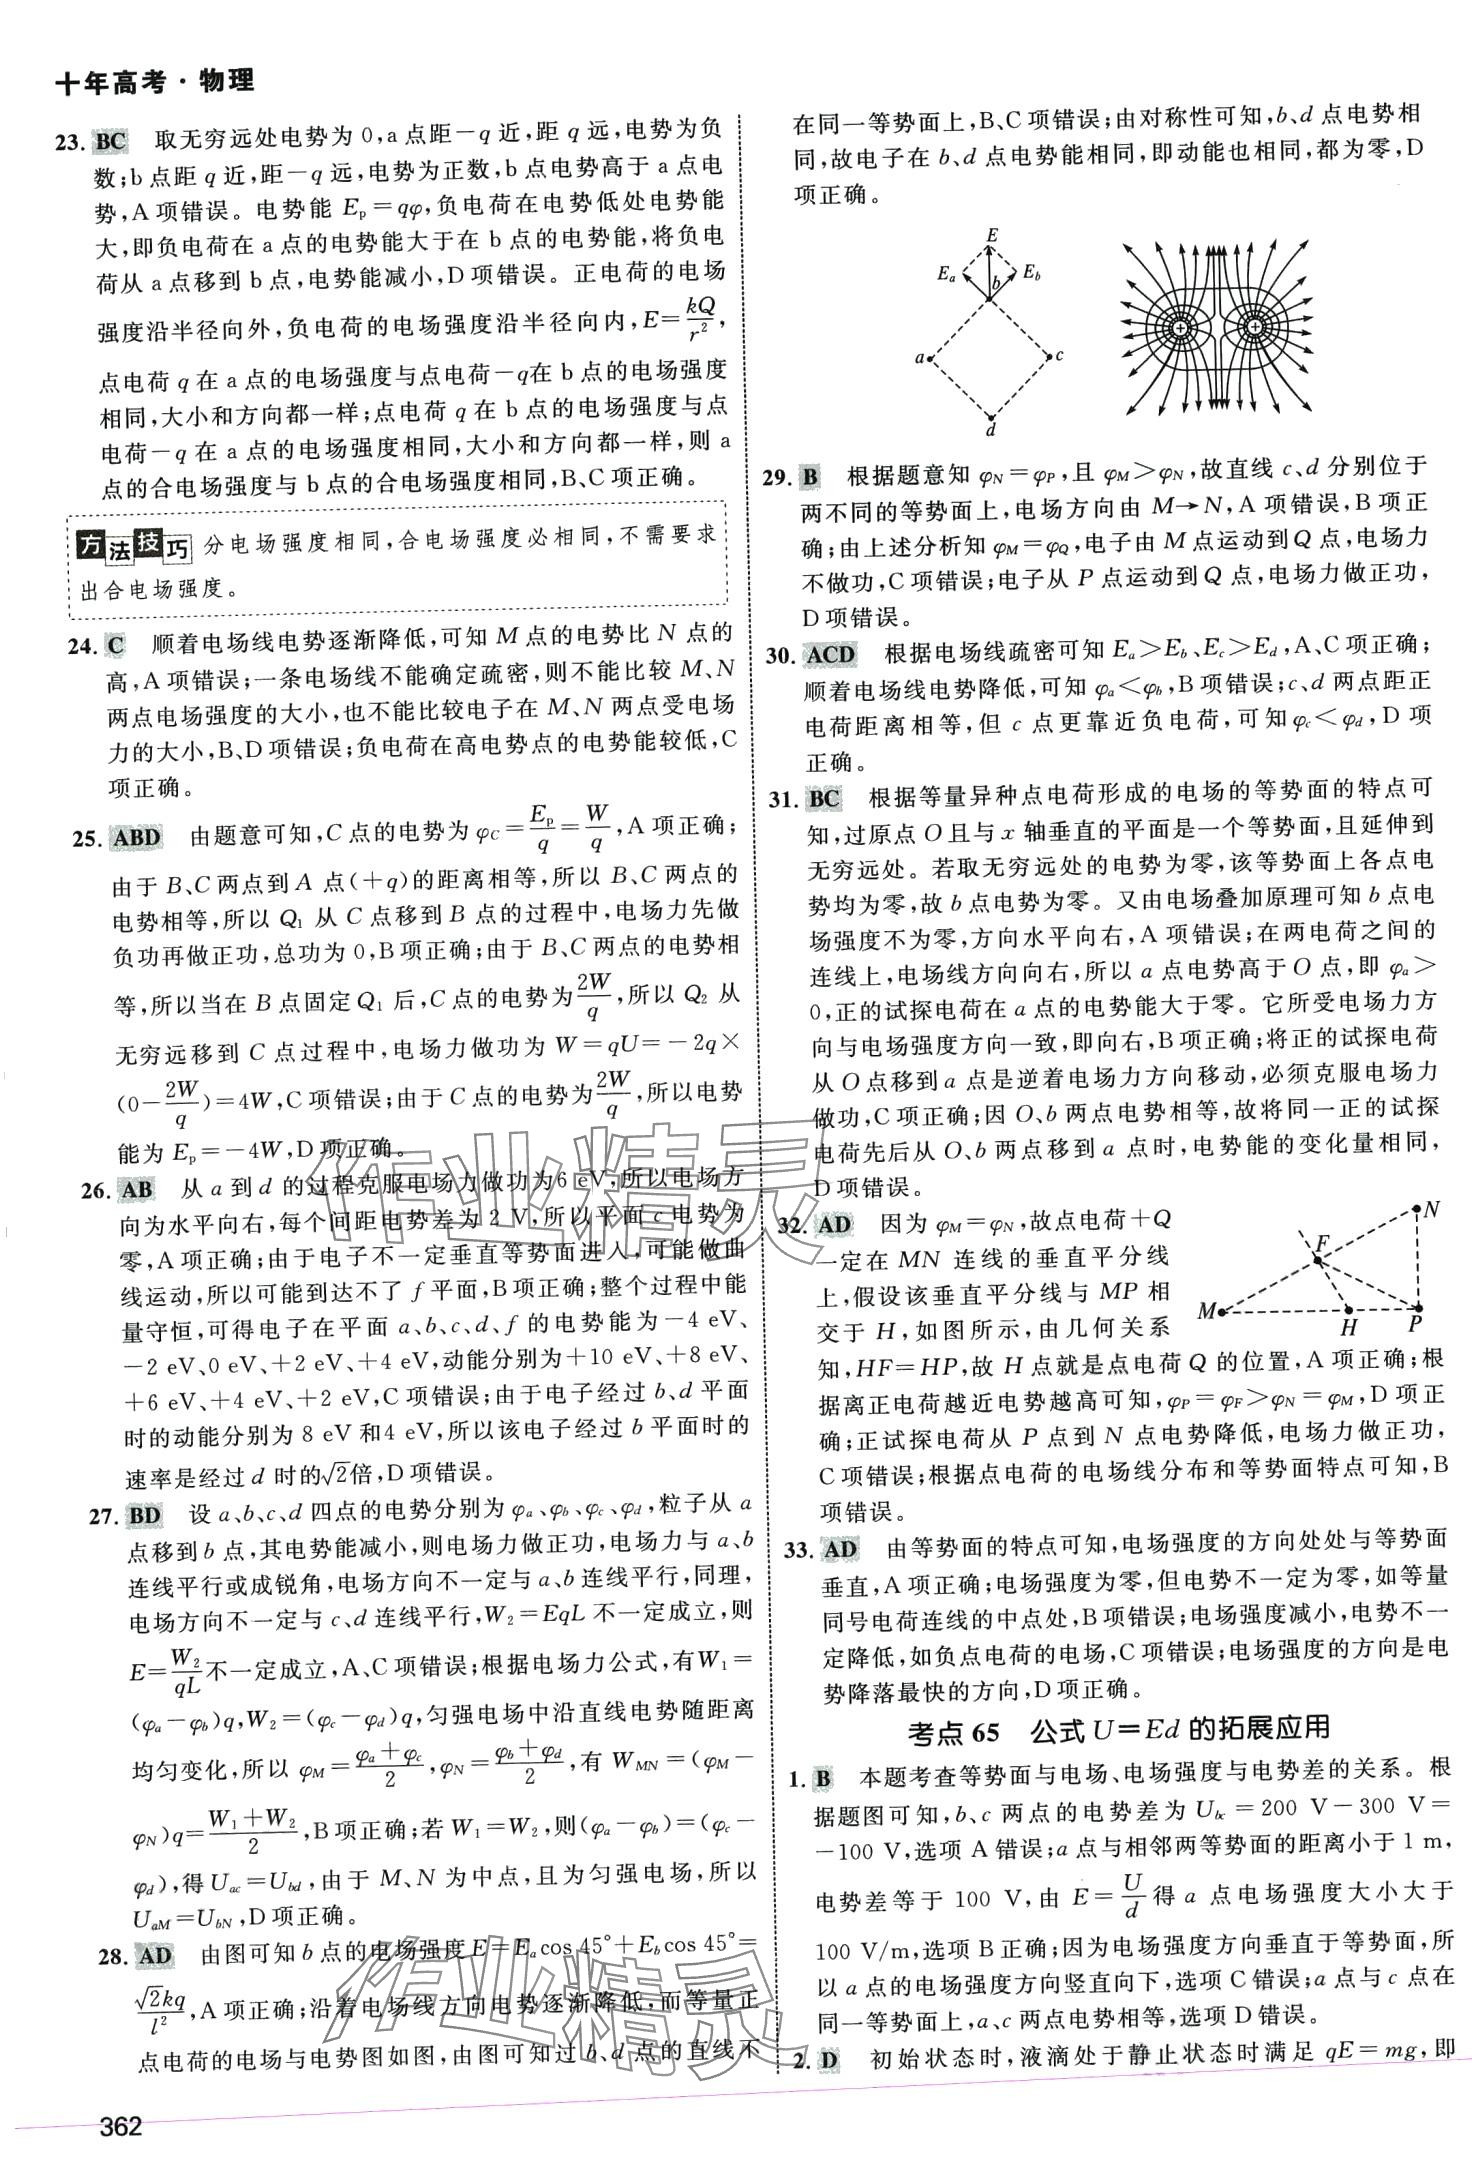 十年高考·物理
23. BC 取无穷远处电势为0,a点距-q近,距q远,电势为负
数;b点距q近,距-q远,电势为正数,b点电势高于a点电
势,A项错误。电势能 Ep=qφ,负电荷在电势低处电势能
大,即负电荷在a点的电势能大于在b点的电势能,将负电
荷从a点移到b点,电势能减小,D项错误。正电荷的电场
强度沿半径向外,负电荷的电场强度沿半径向内,E=kQ/r²,
点电荷q在a点的电场强度与点电荷-q在b点的电场强度
相同,大小和方向都一样;点电荷q在b点的电场强度与点
电荷-q在a点的电场强度相同,大小和方向都一样,则a
点的合电场强度与b点的合电场强度相同,B、C项正确。
方法技巧 分电场强度相同,合电场强度必相同,不需要求
出合电场强度。
24. C 顺着电场线电势逐渐降低,可知M点的电势比N点的
高,A项错误;一条电场线不能确定疏密,则不能比较M、N
两点电场强度的大小,也不能比较电子在M、N两点受电场
力的大小,B、D项错误;负电荷在高电势点的电势能较低,C
项正确。
25. ABD 由题意可知,C点的电势为φC=Ep/q=W/q,A项正确;
由于B、C两点到A点(+q)的距离相等,所以B、C两点的
电势相等,所以Q₁从C点移到B点的过程中,电场力先做
负功再做正功,总功为0,B项正确;由于B、C两点的电势相
等,所以当在B点固定Q₁后,C点的电势为2W/q,所以Q₂从
无穷远移到C点过程中,电场力做功为W=qU=-2q×
(0-2W/q)=4W,C项错误;由于C点的电势为2W/q,所以电势
能为Ep=-4W,D项正确。
26. AB 从a到d的过程克服电场力做功为6 eV,所以电场方
向为水平向右,每个间距电势差为2 V,所以平面c电势为
零,A项正确;由于电子不一定垂直等势面进入,可能做曲
线运动,所以可能到达不了f平面,B项正确;整个过程中能
量守恒,可得电子在平面a、b、c、d、f的电势能为-4 eV、
-2 eV、0 eV、+2 eV、+4 eV,动能分别为+10 eV、+8 eV、
+6 eV、+4 eV、+2 eV,C项错误;由于电子经过b、d平面
时的动能分别为8 eV和4 eV,所以该电子经过b平面时的
速率是经过d时的√2倍,D项错误。
27. BD 设a、b、c、d四点的电势分别为φa、φb、φc、φd,粒子从a
点移到b点,其电势能减小,则电场力做正功,电场力与a、b
连线平行或成锐角,电场方向不一定与a、b连线平行,同理,
电场方向不一定与c、d连线平行,W₂=EqL不一定成立,则
E=W₂/qL不一定成立,A、C项错误;根据电场力公式,有W₁=
(φa-φb)q,W₂=(φc-φd)q,匀强电场中沿直线电势随距离
均匀变化,所以φM=(φa+φc)/2,φN=(φb+φd)/2,有WMN=(φM-
φN)q=(W₁+W₂)/2,B项正确;若W₁=W₂,则(φa-φb)=(φc-
φd),得Uac=Ubd,由于M、N为中点,且为匀强电场,所以
UaM=UbN,D项正确。
28. AD 由图可知b点的电场强度E=Eacos 45°+Ebcos 45°=
√2kq/l²,A项正确;沿着电场线方向电势逐渐降低,而等量正
点电荷的电场与电势图如图,由图可知过b、d点的直线不
362
在同一等势面上,B、C项错误;由对称性可知,b、d点电势相
同,故电子在b、d点电势能相同,即动能也相同,都为零,D
项正确。
E
Ea
Eb
b
a
c
d
29. B 根据题意知φN=φP,且φM>φN,故直线c、d分别位于
两不同的等势面上,电场方向由M→N,A项错误,B项正
确;由上述分析知φM=φQ,电子由M点运动到Q点,电场力
不做功,C项错误;电子从P点运动到Q点,电场力做正功,
D项错误。
30. ACD 根据电场线疏密可知Ea>Eb、Ec>Ed,A、C项正确;
顺着电场线电势降低,可知φa<φb,B项错误;c、d两点距正
电荷距离相等,但c点更靠近负电荷,可知φc<φd,D项
正确。
31. BC 根据等量异种点电荷形成的电场的等势面的特点可
知,过原点O且与x轴垂直的平面是一个等势面,且延伸到
无穷远处。若取无穷远处的电势为零,该等势面上各点电
势均为零,故b点电势为零。又由电场叠加原理可知b点电
场强度不为零,方向水平向右,A项错误;在两电荷之间的
连线上,电场线方向向右,所以a点电势高于O点,即φa>
0,正的试探电荷在a点的电势能大于零。它所受电场力方
向与电场强度方向一致,即向右,B项正确;将正的试探电荷
从O点移到a点是逆着电场力方向移动,必须克服电场力
做功,C项正确;因O、b两点电势相等,故将同一正的试探
电荷先后从O、b两点移到a点时,电势能的变化量相同,
D项错误。
32. AD 因为φM=φN,故点电荷+Q
一定在MN连线的垂直平分线
上,假设该垂直平分线与MP相
交于H,如图所示,由几何关系
N
F
M
H
P
知,HF=HP,故H点就是点电荷Q的位置,A项正确;根
据离正电荷越近电势越高可知,φP=φF>φN=φM,D项正
确;正试探电荷从P点到N点电势降低,电场力做正功,
C项错误;根据点电荷的电场线分布和等势面特点可知,B
项错误。
33. AD 由等势面的特点可知,电场强度的方向处处与等势面
垂直,A项正确;电场强度为零,但电势不一定为零,如等量
同号电荷连线的中点处,B项错误;电场强度减小,电势不一
定降低,如负点电荷的电场,C项错误;电场强度的方向是电
势降落最快的方向,D项正确。
考点65 公式U=Ed的拓展应用
1. B 本题考查等势面与电场、电场强度与电势差的关系。根
据题图可知,b、c两点的电势差为Ubc=200 V-300 V=
-100 V,选项A错误;a点与相邻两等势面的距离小于1 m,
电势差等于100 V,由E=U/d得a点电场强度大小大于
100 V/m,选项B正确;因为电场强度方向垂直于等势面,所
以a点的电场强度方向竖直向下,选项C错误;a点与c点在
同一等势面上,a、c两点电势相等,选项D错误。
2. D 初始状态时,液滴处于静止状态时满足qE=mg,即
作业精灵
作业精灵